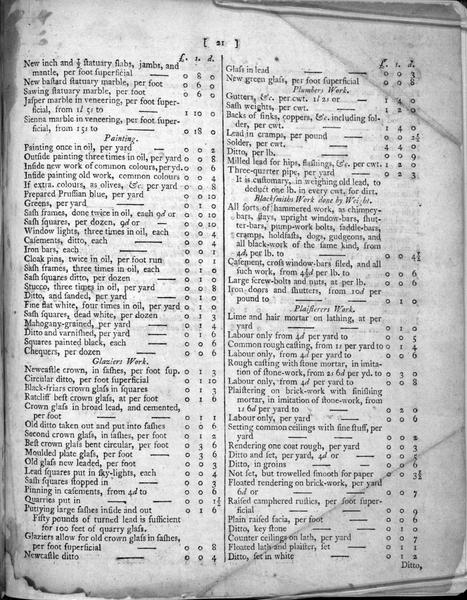 [ 21 ]
£. s. d.
New inch and ½ statuary slabs, jambs, and
mantle, per foot superficial — 0 8 0
New bastard statuary marble, per foot 0 6 0
Sawing statuary marble, per foot 0 6 0
Jasper marble in veneering, per foot super-
ficial, from 1l 5s to — 1 10 0
Sienna marble in veneering, per foot super-
ficial, from 15s to — 0 18 0
Painting.
Painting once in oil, per yard — 0 0 2
Outside painting three times in oil, per yard 0 0 8
Inside new work of common colours, per yd. 0 0 6
Inside painting old work, common colours 0 0 4
If extra. colours, as olives, &c. per yard 0 0 8
Prepared Prussian blue, per yard 0 0 10
Greens, per yard — 0 1 0
Sash frames, done twice in oil, each 9d or 0 0 10
Sash squares, per dozen, 9d or 0 0 10
Window lights, three times in oil, each 0 0 4
Casements, ditto, each — 0 0 4
Iron bars, each — 0 0 1
Cloak pins, twice in oil, per foot run 0 0 1
Sash frames, three times in oil, each 0 1 0
Sash squares ditto, per dozen 0 1 0
Stucco, three times in oil, per yard 0 0 8
Ditto, and sanded, per yard — 0 1 0
Fine flat white, four times in oil, per yard 0 1 0
Sash squares, dead white, per dozen 0 1 3
Mahogany-grained, per yard — 0 1 4
Ditto and varnished, per yard — 0 1 6
Squares painted black, each — 0 0 6
Chequers, per dozen — 0 0 6
Glaziers Work.
Newcastle crown, in sashes, per foot sup. 0 1 3
Circular ditto, per foot superficial 0 1 10
Black-friars crown glass in squares 0 1 3
Ratcliff best crown glass, at per foot 0 1 6
Crown glass in broad lead, and cemented,
per foot — 0 1 1
Old ditto taken out and put into sashes 0 0 6
Second crown glass, in sashes, per foot 0 1 2
Best crown glass bent circular, per foot 0 3 6
Moulded plate glass, per foot 0 3 6
Old glass new leaded, per foot 0 0 3
Lead squares put in sky-lights, each 0 0 4
Sash squares stopped in — 0 0 3
Pinning in casements, from 4d to 0 0 6
Quarries put in — 0 0 1½
Puttying large sashes inside and out 0 1 6
Fifty pounds of turned lead is sufficient
for 100 feet of quarry glass.
Glaziers allow for old crown glass in sashes,
per foot superficial — 0 0 8
Newcastle ditto — 0 0 4
£. s. d.
Glass in lead — 0 0 3
New green glass, per foot superficial 0 0 8
Plumbers Work.
Gutters, &c. per cwt. 1l 2s or — 1 4 0
Sash weights, per cwt. — 1 2 0
Backs of sinks, coppers, &c. including sol-
der, per cwt. — 1 4 0
Lead in cramps, per pound —
Solder, per cwt. — 4 4 0
Ditto, per lb. — 0 0 9
Milled lead for hips, flashings, &c. per cwt. 1 2 0
Three-quarter pipe, per yard — 0 2 3
It is customary, in weighing old lead, to
deduct one lb. in every cwt. for dirt.
Blacksmiths Work done by Weight.
All sorts of hammered work, as chimney-
bars, stays, upright window-bars, shut-
ter-bars, pump-work bolts, saddle-bars,
cramps, holdfasts, dogs, gudgeons, and
all black-work of the same kind, from
4d, per lb. to — 0 0 4½
Casements, cross window-bars filed, and all
such work, from 4½d per lb. to 0 0 6
Large screw-bolts and nuts, at per lb. 0 0 6
Iron doors and shutters, from 10d per
pound to — 0 1 0
Plaisterers Work.
Lime and hair mortar on lathing, at per
yard — 0 1 0
Labour only from 4d per yard to 0 0 5
Common rough casting, from 1s per yard to 0 1 4
Labour only, from 4d per yard to 0 0 6
Rough casting with stone mortar, in imita-
tion of stone-work, from 2s 6d per yd. to 0 3 0
Labour only, from 4d per yard to 0 0 8
Plaistering on brick-work with finishing
mortar, in imitation of stone-work, from
1s 6d per yard to — 0 2 0
Labour only, per yard — 0 0 6
Setting common ceilings with fine stuff, per
yard — 0 0 2
Rendering one coat rough, per yard 0 0 3
Ditto and set, per yard, 4d or — 0 0 5
Ditto, in groins — 0 0 6
Not set, but trowelled smooth for paper 0 0 3½
Floated rendering on brick-work, per yard
6d or — 0 0 7
Raised camphered rustics, per foot super-
ficial — 0 0 9
Plain raised facia, per foot — 0 0 6
Ditto, key stone — 0 1 0
Counter ceilings on lath, per yard 0 0 7
Floated lath and plaister, set — 0 1 1
Ditto, set in white — 0 1 2
Ditto,